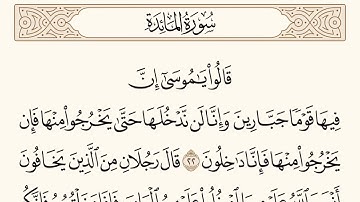 سُورَةُ المَائِدَةِ
قَالُوا۟ يَٰمُوسَىٰٓ إِنَّ
فِيهَا قَوْمًا جَبَّارِينَ وَإِنَّا لَن نَّدْخُلَهَا حَتَّىٰ يَخْرُجُوا۟ مِنْهَا فَإِن
يَخْرُجُوا۟ مِنْهَا فَإِنَّا دَٰخِلُونَ ٢٢ قَالَ رَجُلَانِ مِنَ ٱلَّذِينَ يَخَافُونَ